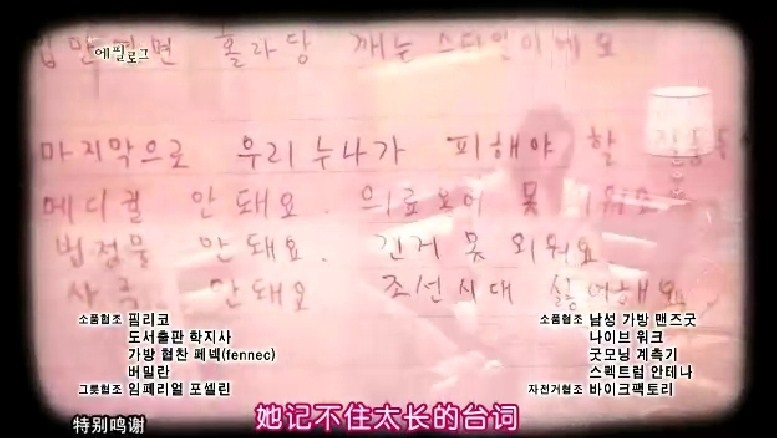 입만 열면 홀라당 깨는 스타일이에요
에필로그
마지막으로 우리 누나가 피해야 할
메디컬 안돼요. 의료용어 못 외워요
법정물 안돼요. 긴거 못 외워요
사극 안돼요 조선시대 싫어해요
소품협조 핌리코
도서출판 학지사
가방 협찬 페넥(fennec)
버밀란
그릇협조 임페리얼 포셀린
소품협조 남성 가방 맨즈굿
나이브 워크
굿모닝 계측기
스펙트럼 안테나
자전거협조 바이크팩토리
特别鸣谢
她记不住太长的台词